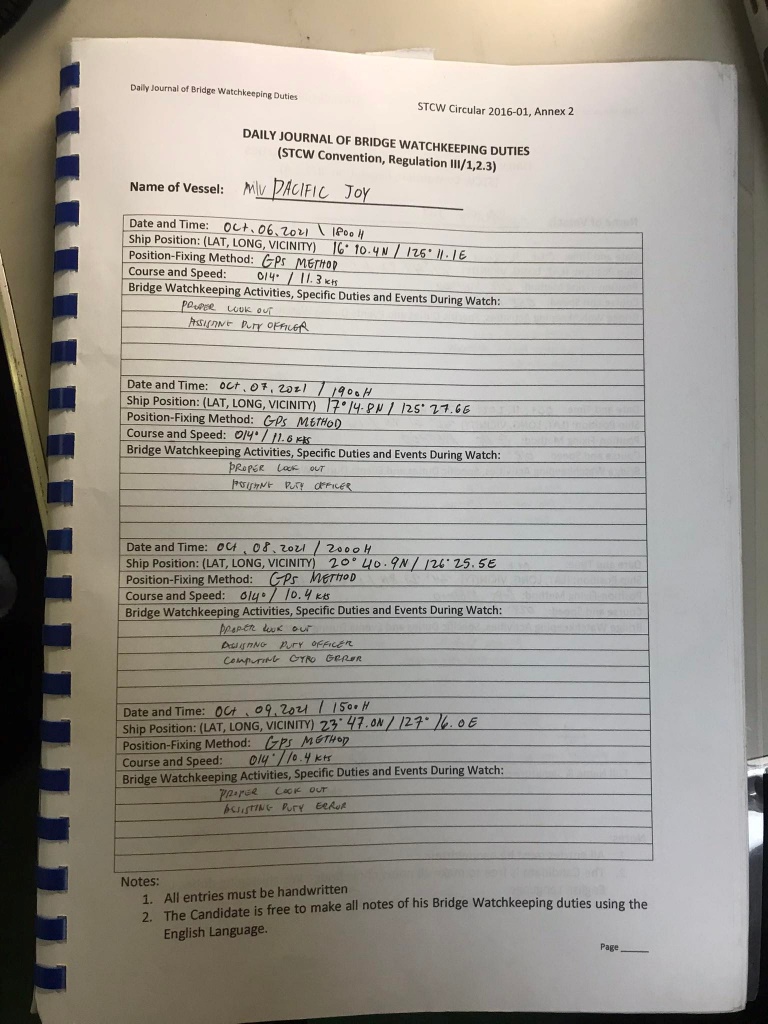 Daily Journal of Bridge Watchkeeping Duties
STCW Circular 2016-01, Annex 2
DAILY JOURNAL OF BRIDGE WATCHKEEPING DUTIES
(STCW Convention, Regulation III/1,2.3)
Name of Vessel: M/V PACIFIC JOY
Date and Time: Oct. 06, 2021 \ 1800 H
Ship Position: (LAT, LONG, VICINITY) 16° 10.4N / 125° 11.1E
Position-Fixing Method: GPS METHOD
Course and Speed: 014° / 11.3 kts
Bridge Watchkeeping Activities, Specific Duties and Events During Watch:
PROPER LOOK OUT
ASSISTING DUTY OFFICER
Date and Time: Oct. 07, 2021 / 1900 H
Ship Position: (LAT, LONG, VICINITY) 17° 14.8N / 125° 27.6E
Position-Fixing Method: GPS METHOD
Course and Speed: 014° / 11.0 kts
Bridge Watchkeeping Activities, Specific Duties and Events During Watch:
PROPER LOOK OUT
ASSISTING DUTY OFFICER
Date and Time: Oct. 08, 2021 / 2000 H
Ship Position: (LAT, LONG, VICINITY) 20° 40.9N / 126° 25.5E
Position-Fixing Method: GPS METHOD
Course and Speed: 014° / 10.4 kts
Bridge Watchkeeping Activities, Specific Duties and Events During Watch:
PROPER LOOK OUT
ASSISTING DUTY OFFICER
COMPUTING GYRO ERROR
Date and Time: Oct. 09, 2021 / 1500 H
Ship Position: (LAT, LONG, VICINITY) 23° 47.0N / 127° 16.0E
Position-Fixing Method: GPS METHOD
Course and Speed: 014° / 10.4 kts
Bridge Watchkeeping Activities, Specific Duties and Events During Watch:
PROPER LOOK OUT
ASSISTING DUTY ERROR
Notes:
1. All entries must be handwritten
2. The Candidate is free to make all notes of his Bridge Watchkeeping duties using the
English Language.
Page